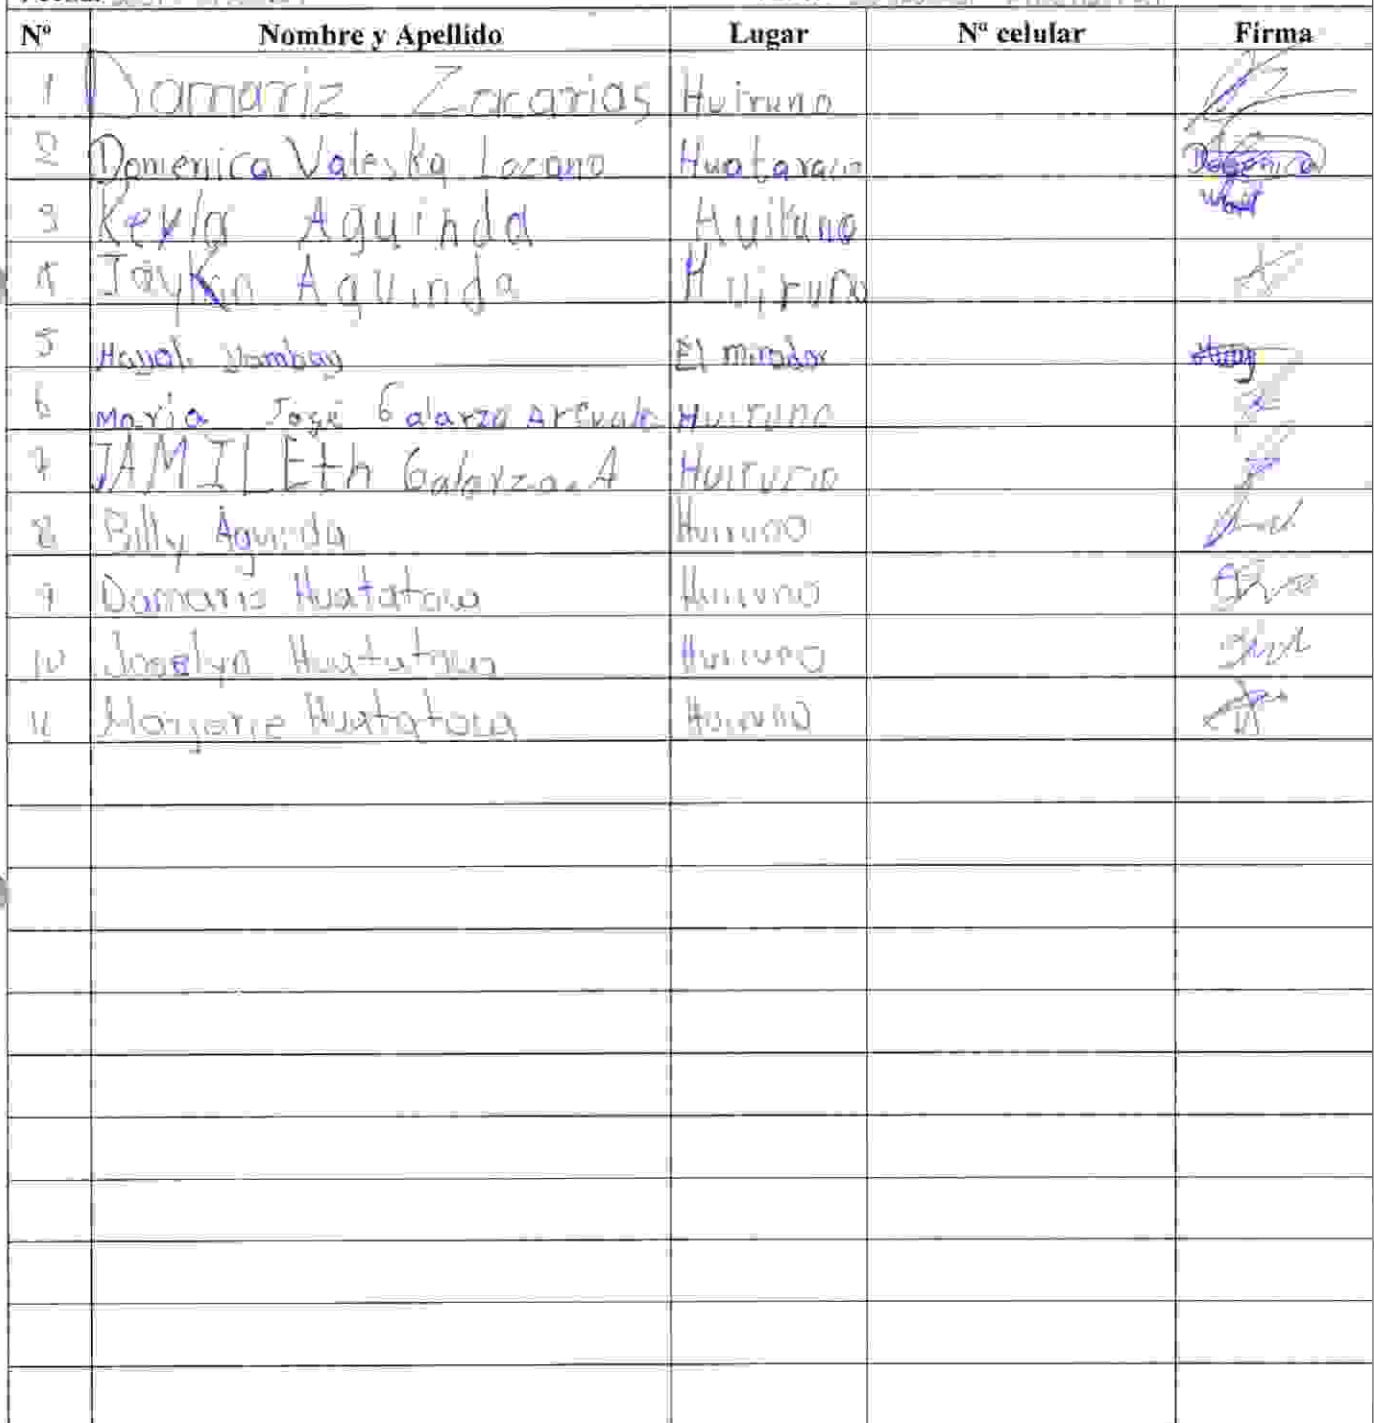 Nº Nombre y Apellido Lugar Nª celular Firma
1 Damariz Zacarias Huiruno
2 Domenica Valeska Lozano Huataraco Domenica
3 Keyla Aguinda Huiruno
4 Jaykin Aguinda Huiruno
5 Mayoli Yumbay El mirador
6 Maria José Galarza Arevalo Huiruno
7 JAMILEth Galarza.A Huiruno
8 Billy Aguinda Huiruno
9 Damaris Huatatoca Huiruno
10 Joselyn Huatatoca Huiruno
11 Marjorie Huatatoca Huiruno